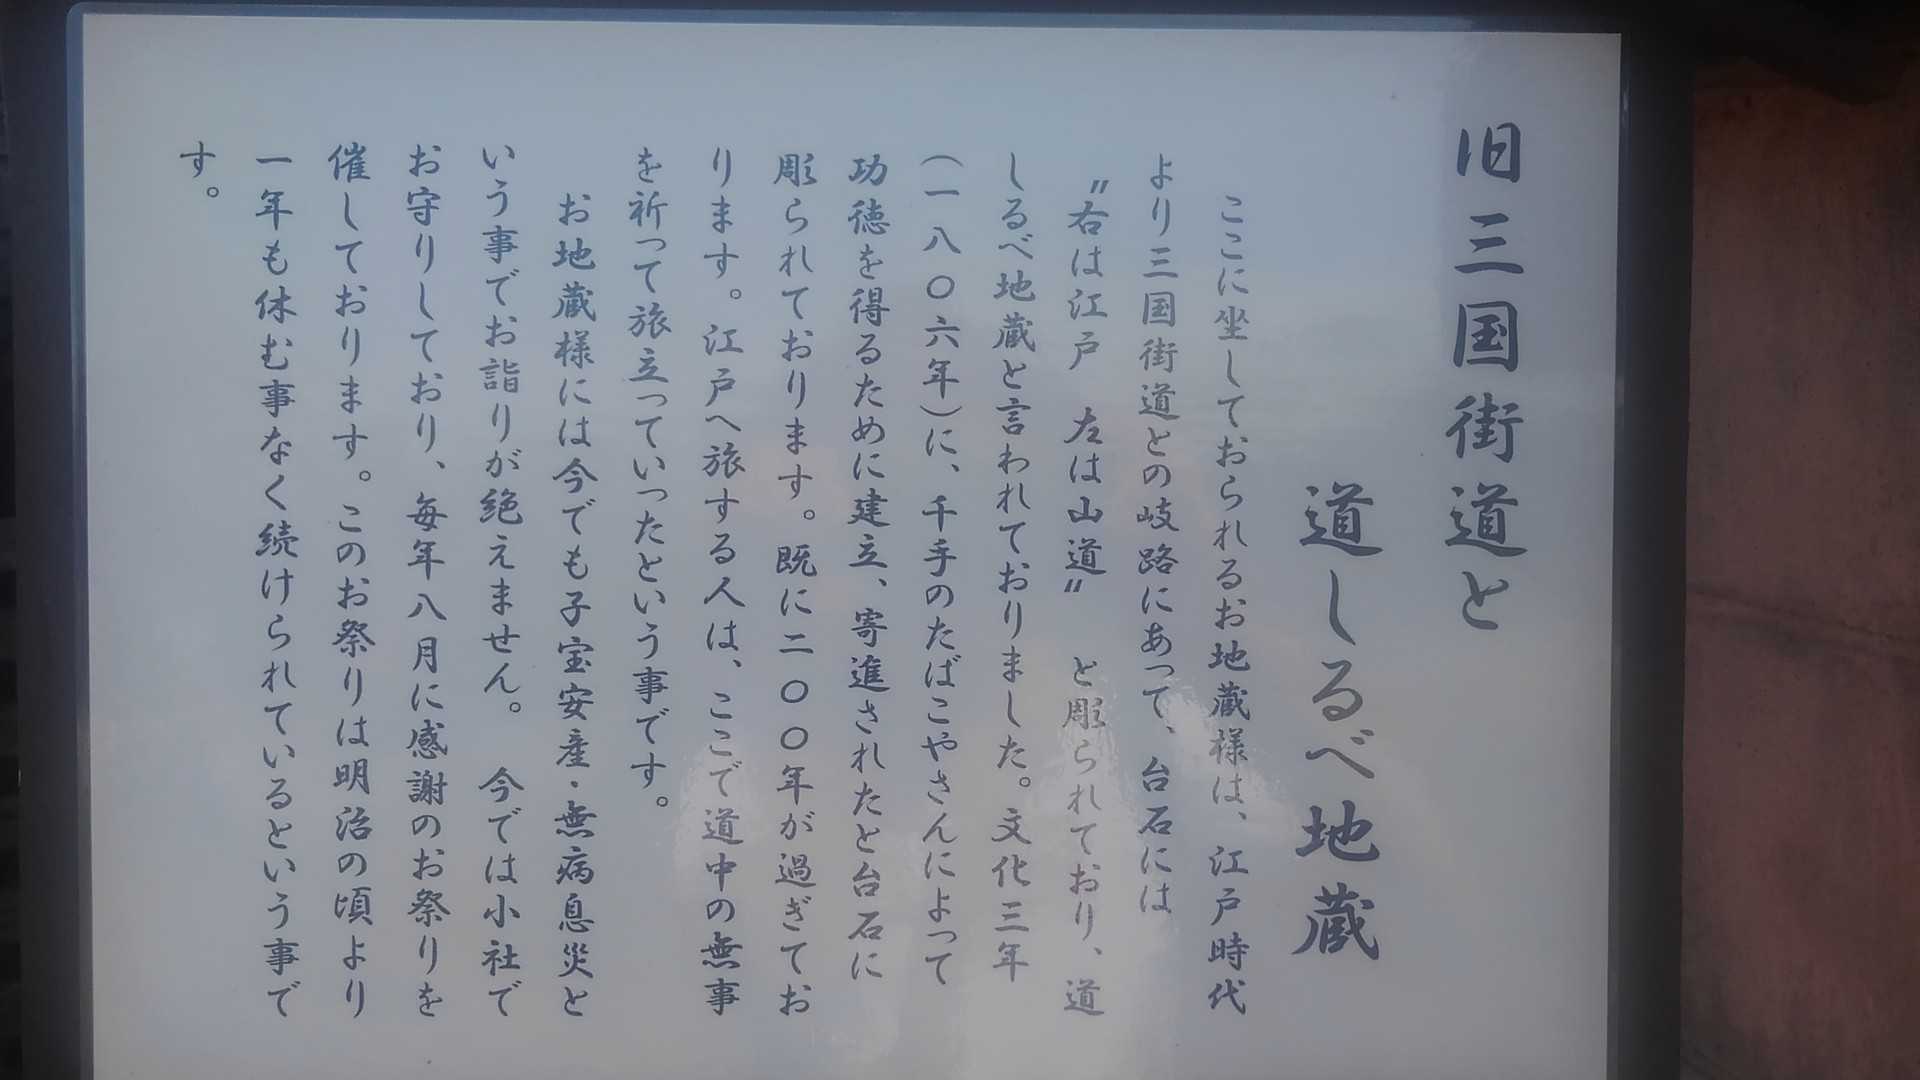 旧三国街道と
道しるべ地蔵
ここに坐しておられるお地蔵様は、江戸時代
より三国街道との岐路にあって、台石には
〝右は江戸　左は山道〟　と彫られており、道
しるべ地蔵と言われておりました。文化三年
(一八〇六年)に、千手のたばこやさんによって
功徳を得るために建立、寄進されたと台石に
彫られております。既に二〇〇年が過ぎてお
ります。江戸へ旅する人は、ここで道中の無事
を祈って旅立っていったという事です。
お地蔵様には今でも子宝安産・無病息災と
いう事でお詣りが絶えません。　今では小社で
お守りしており、毎年八月に感謝のお祭りを
催しております。このお祭りは明治の頃より
一年も休む事なく続けられているという事で
す。